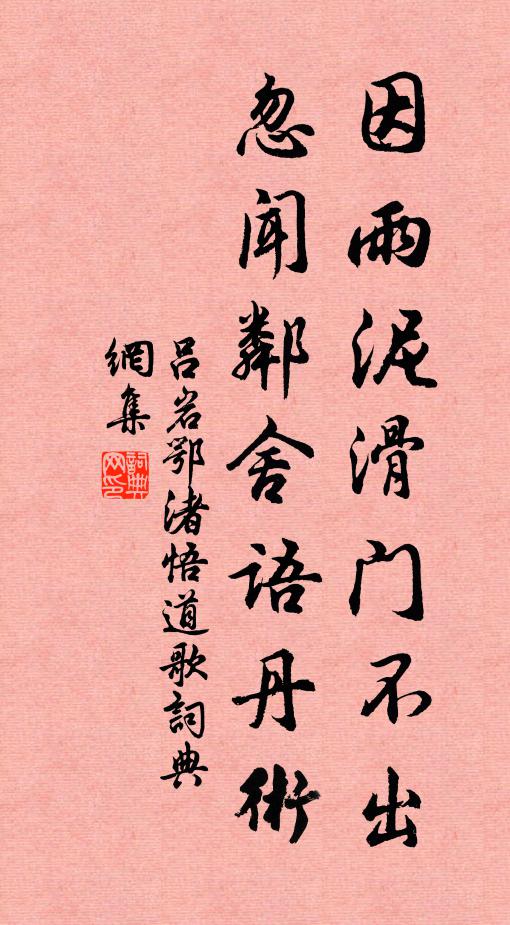 因雨泥滑门不出
忽闻鄰舍语丹術
吕岩鄂渚悟道歌詞典
網集
詞典网印